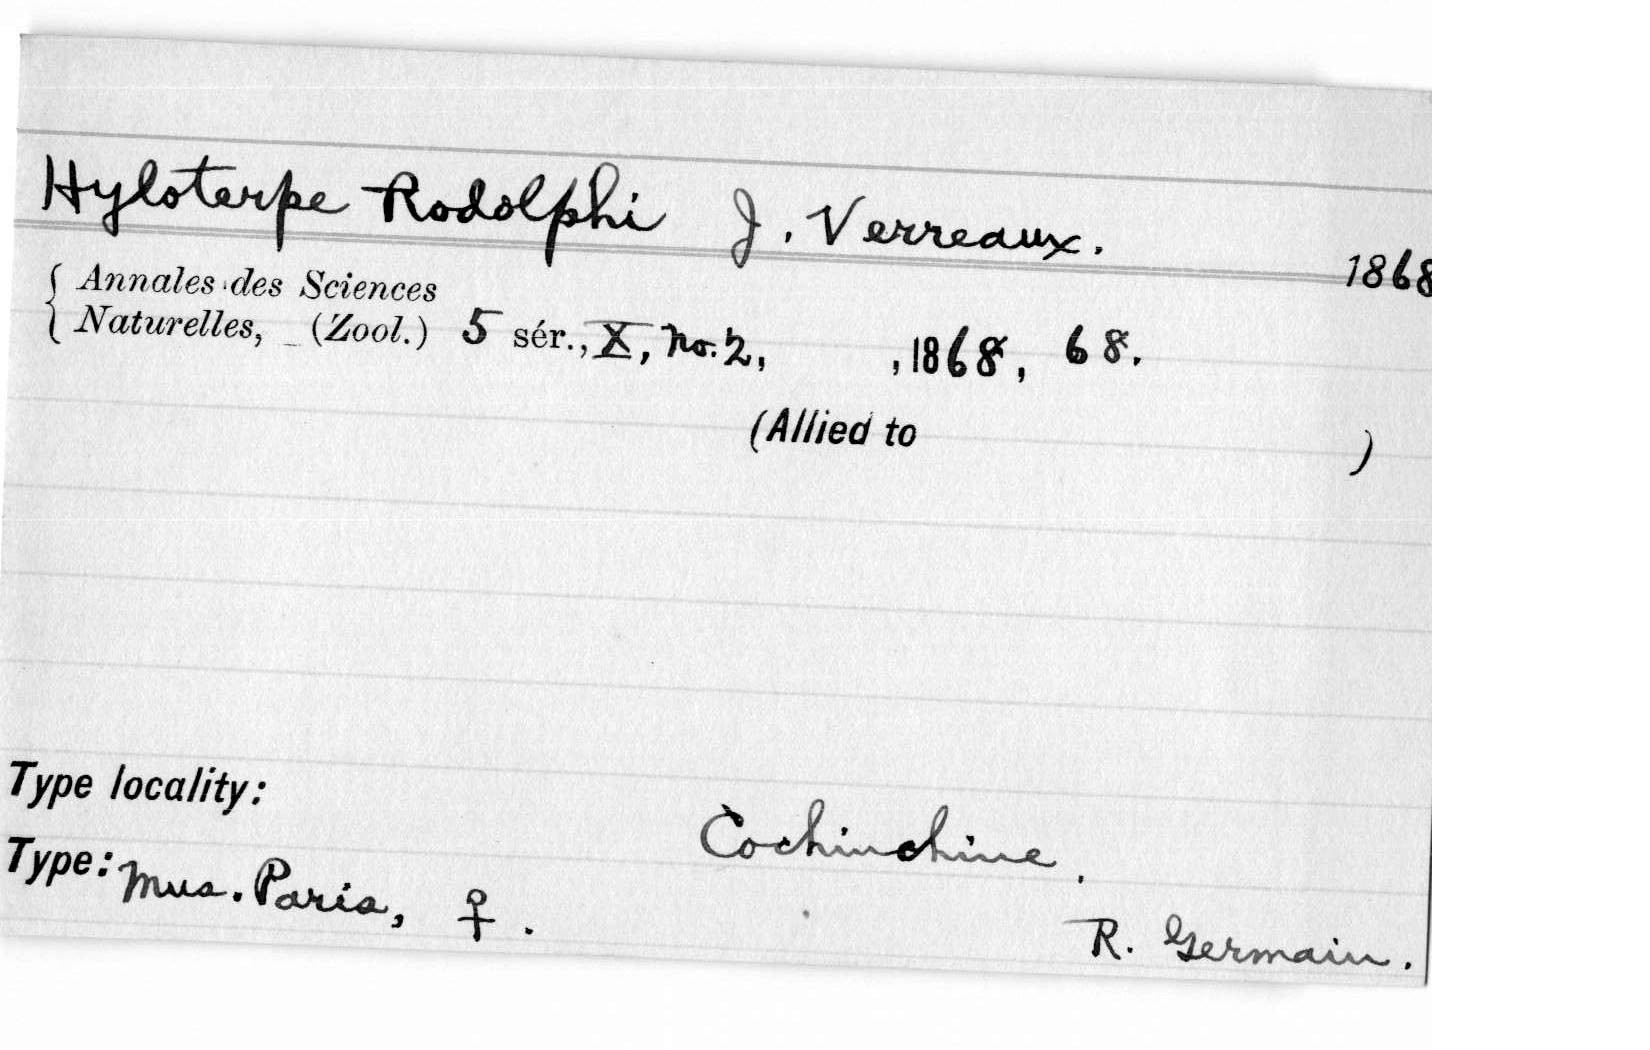 Hyloterpe Rodolphi J. Verreaux.
1868
Annales des Sciences
Naturelles, (Zool.) 5 sér., X, no. 2, , 1868, 68.
(Allied to )
Type locality:
Cochinchine.
Type: Mus. Paris, ♀.
R. Germain.